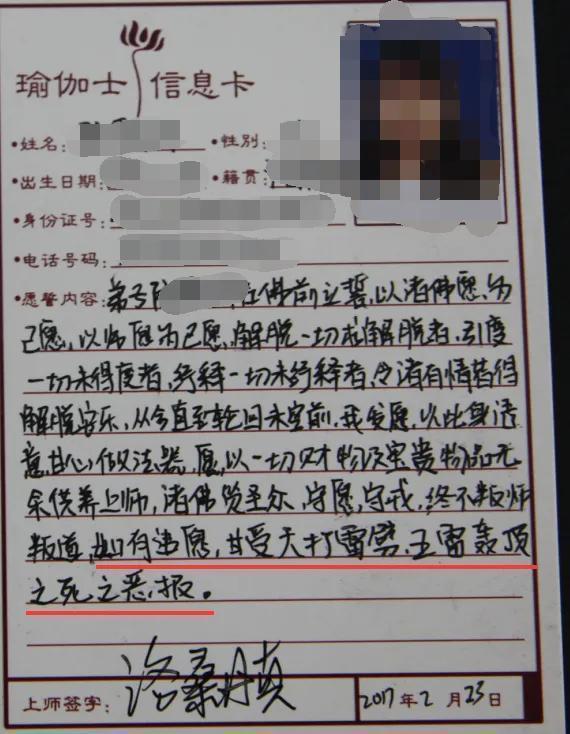 瑜伽士 信息卡
•姓名: •性别:
•出生日期: •籍贯:
•身份证号:
•电话号码:
•愿誓内容: 弟子 在佛前立誓,以诸佛愿,为
己愿,以师愿为己愿,解脱一切未解脱者,引度
一切未得度者,终释一切未终释者,令诸有情皆得
解脱安乐,从今直到轮回未空前,我发愿,以此身语
意,甘心做法器,愿以一切财物及宝贵物品无
余供养上师,诸佛贤圣众,守愿,守戒,终不叛师
叛道,如有违愿,甘受天打雷劈,五雷轰顶
之死之恶报。
上师签字: 洛桑丹真 2017年2月23日